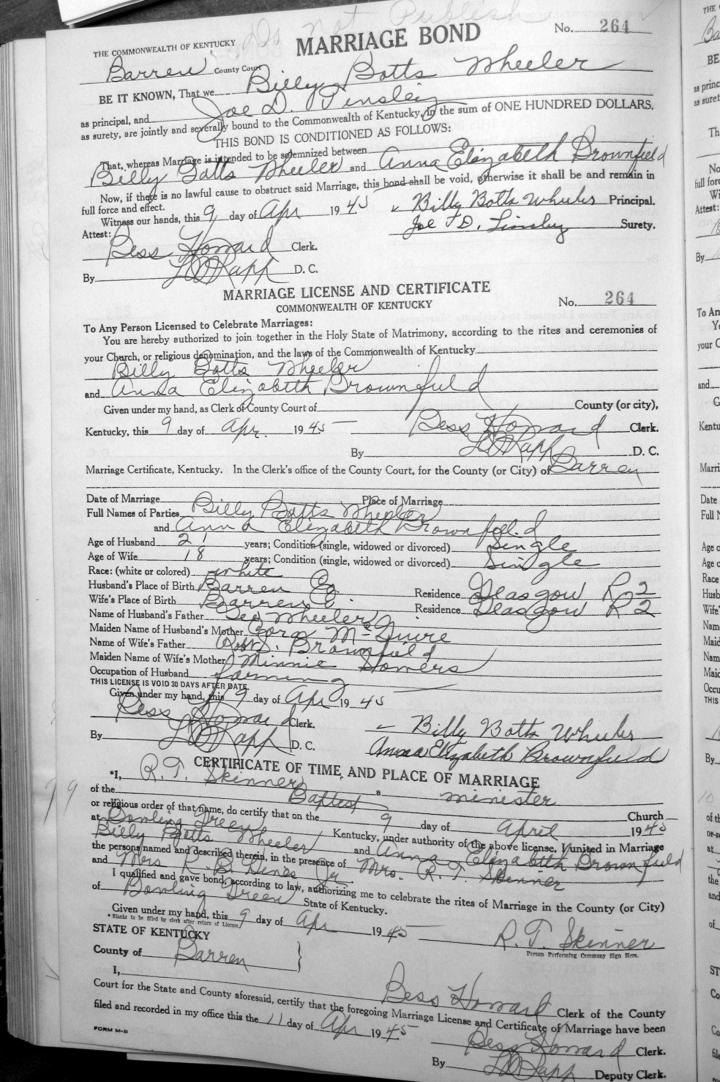 Do Not Publish
THE COMMONWEALTH OF KENTUCKY
MARRIAGE BOND
No. 264
Barren County Court
BE IT KNOWN, That we Billy Botts Wheeler
as principal, and Joe D. Tinsley
as surety, are jointly and severally bound to the Commonwealth of Kentucky, in the sum of ONE HUNDRED DOLLARS.
THIS BOND IS CONDITIONED AS FOLLOWS:
That, whereas Marriage is intended to be solemnized between
Billy Botts Wheeler and Anna Elizabeth Brownfield
Now, if there is no lawful cause to obstruct said Marriage, this bond shall be void, otherwise it shall be and remain in
full force and effect.
Witness our hands, this 9 day of Apr 1945 Billy Botts Wheeler Principal.
Attest: Joe D. Tinsley Surety.
Bess Howard Clerk.
By D. C.
MARRIAGE LICENSE AND CERTIFICATE
COMMONWEALTH OF KENTUCKY
No. 264
To Any Person Licensed to Celebrate Marriages:
You are hereby authorized to join together in the Holy State of Matrimony, according to the rites and ceremonies of
your Church, or religious denomination, and the laws of the Commonwealth of Kentucky
Billy Botts Wheeler
and Anna Elizabeth Brownfield
Given under my hand, as Clerk of County Court of County (or city),
Kentucky, this 9 day of Apr. 1945 Bess Howard Clerk.
By D. C.
Marriage Certificate, Kentucky. In the Clerk's office of the County Court, for the County (or City) of Barren
Date of Marriage Place of Marriage
Full Names of Parties Billy Botts Wheeler
and Anna Elizabeth Brownfield
Age of Husband 21 years; Condition (single, widowed or divorced) Single
Age of Wife 18 years; Condition (single, widowed or divorced) Single
Race: (white or colored) white
Husband's Place of Birth Barren Co. Residence Glasgow R2
Wife's Place of Birth Barren Co. Residence Glasgow R2
Name of Husband's Father Geo Wheeler
Maiden Name of Husband's Mother Cora McGuire
Name of Wife's Father Brownfield
Maiden Name of Wife's Mother Minnie
Occupation of Husband farming
THIS LICENSE IS VOID 30 DAYS AFTER DATE.
Given under my hand, this 9 day of Apr 1945
Bess Howard Clerk. Billy Botts Wheeler
By D. C. Anna Elizabeth Brownfield
CERTIFICATE OF TIME, AND PLACE OF MARRIAGE
*I, R. T. Skinner a minister
of the Baptist Church
or religious order of that name, do certify that on the 9 day of April 1945
at Bowling Green Kentucky, under authority of the above license, I united in Marriage
Billy Botts Wheeler and Anna Elizabeth Brownfield
the persons named and described therein, in the presence of Mrs. R. T. Skinner
and Mrs R. B. Jr
I qualified and gave bond, according to law, authorizing me to celebrate the rites of Marriage in the County (or City)
of Bowling Green State of Kentucky.
Given under my hand, this 9 day of Apr 1945 R. T. Skinner
*Blanks to be filled by clerk after return of License. Person Performing Ceremony Sign Here.
STATE OF KENTUCKY
County of Barren
I, Bess Howard Clerk of the County
Court for the State and County aforesaid, certify that the foregoing Marriage License and Certificate of Marriage have been
filed and recorded in my office this the 11 day of Apr 1945
Bess Howard Clerk.
By Deputy Clerk.
FORM M-B